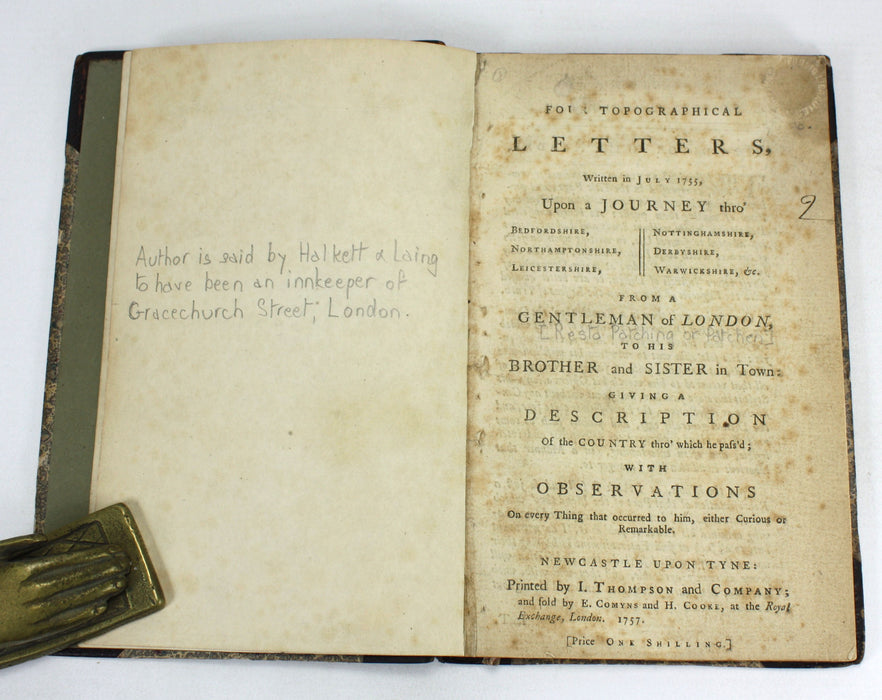 Author is said by Halkett & Laing
to have been an innkeeper of
Gracechurch Street, London.
FOUR TOPOGRAPHICAL
LETTERS,
Written in JULY 1755,
Upon a JOURNEY thro'
BEDFORDSHIRE,
NORTHAMPTONSHIRE,
LEICESTERSHIRE,
NOTTINGHAMSHIRE,
DERBYSHIRE,
WARWICKSHIRE, &c.
2
FROM A
GENTLEMAN of LONDON,
[Resta Patching or Patchen]
TO HIS
BROTHER and SISTER in Town:
GIVING A
DESCRIPTION
Of the COUNTRY thro' which he paſs'd;
WITH
OBSERVATIONS
On every Thing that occurred to him, either Curious or
Remarkable.
NEWCASTLE UPON TYNE:
Printed by I. THOMPSON and COMPANY;
and ſold by E. COMYNS and H. COOKE, at the Royal
Exchange, London. 1757.
[Price ONE SHILLING.]